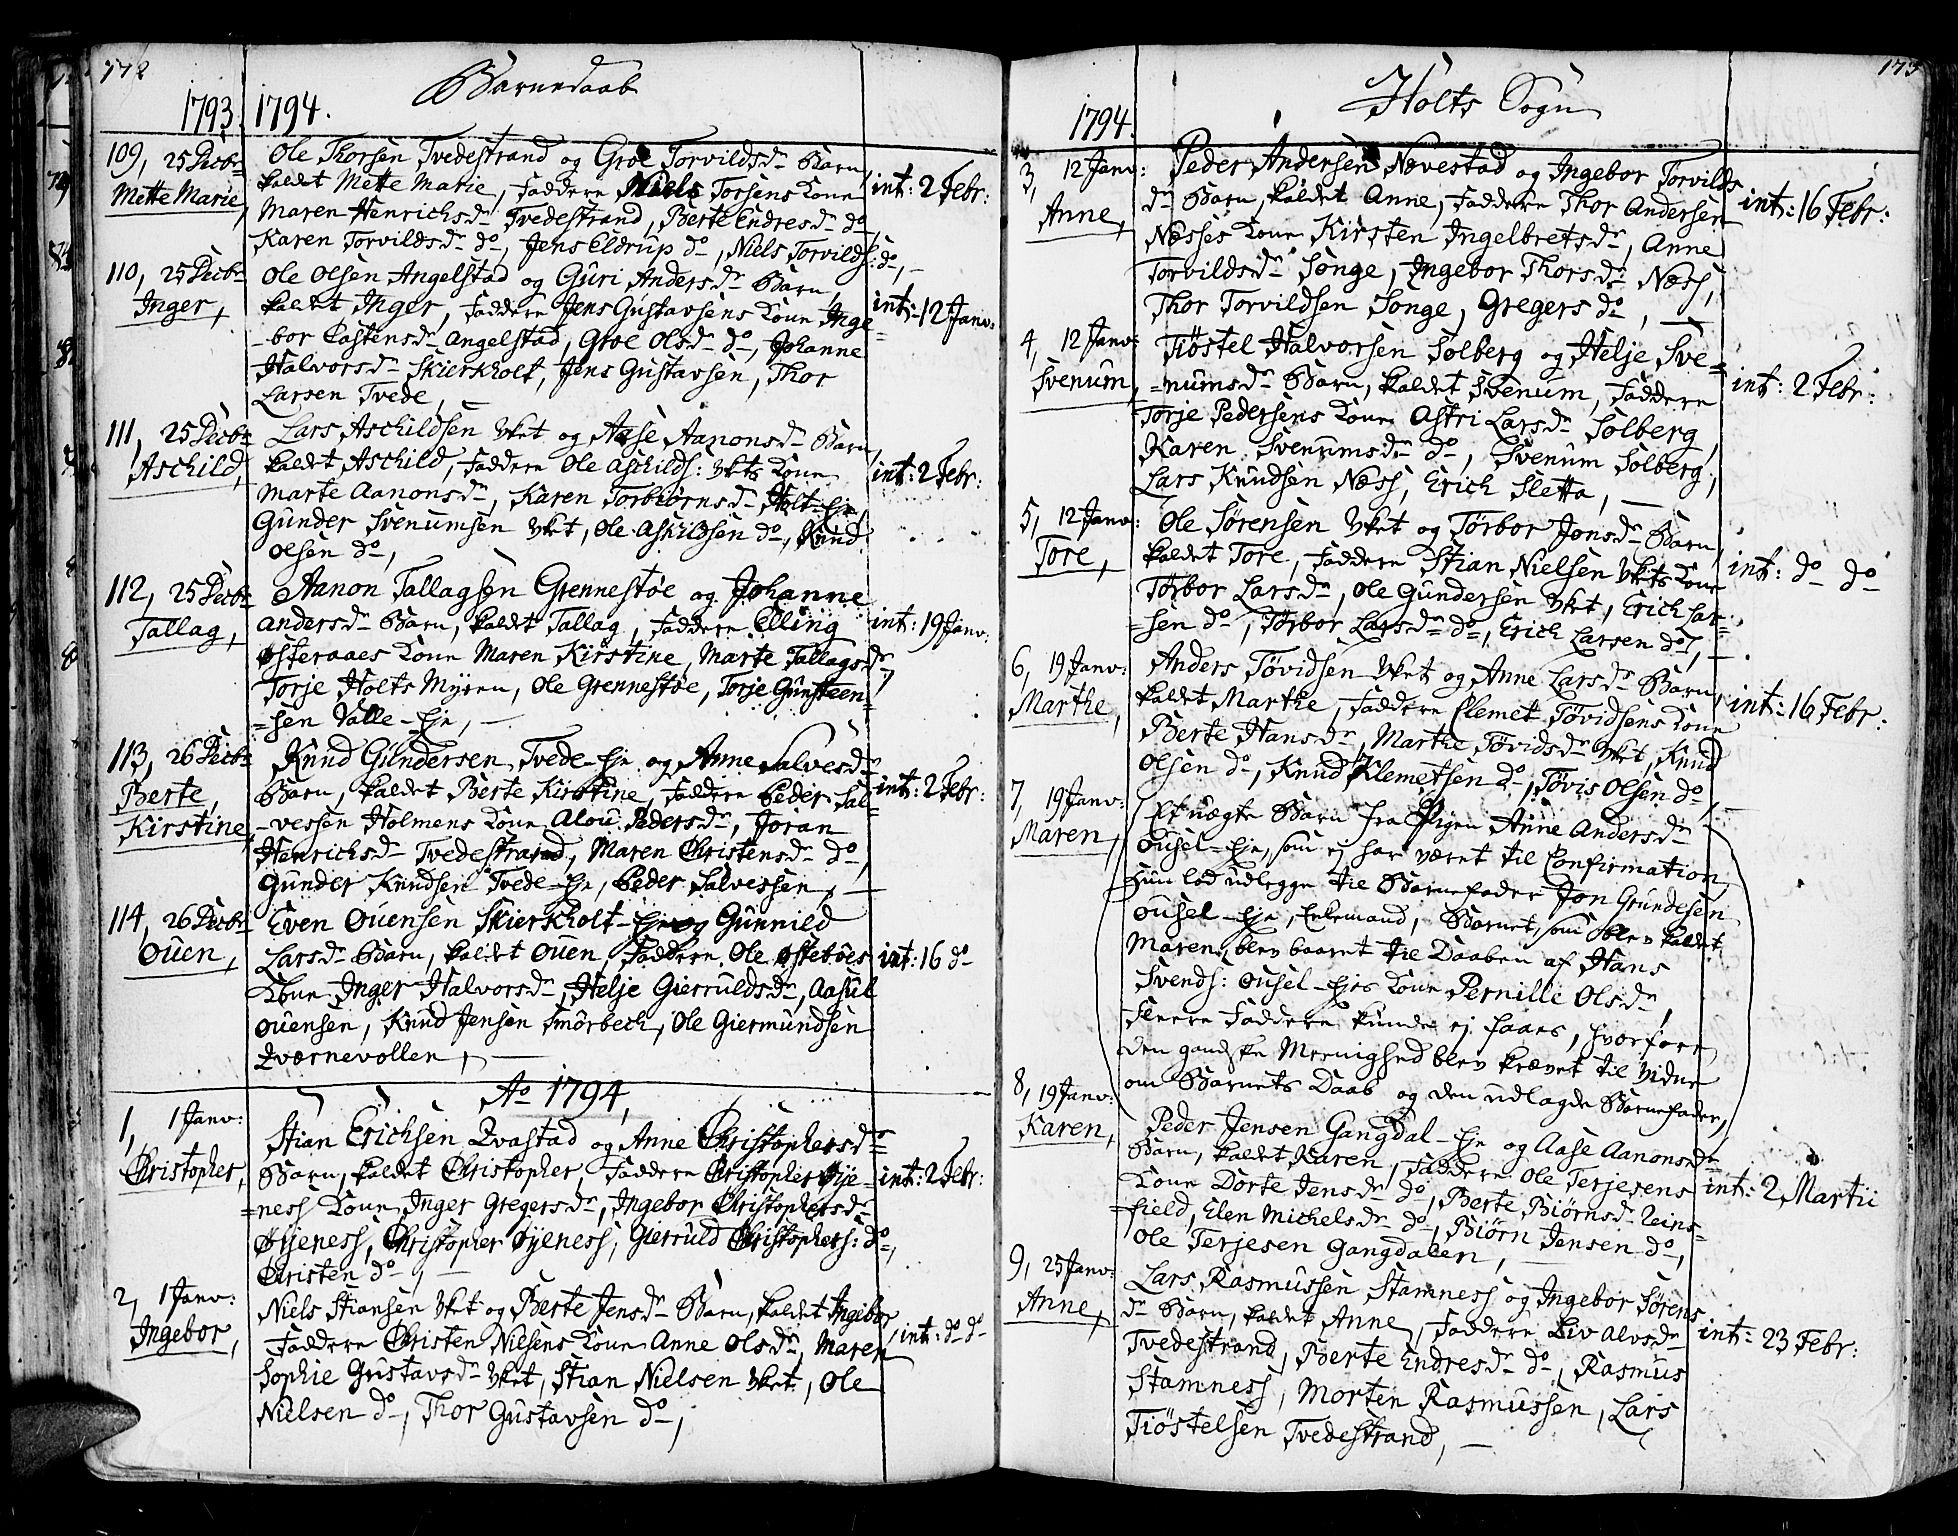 172
Barnedaab
1793. 1794.
109, 25 Decbr
Mette Marie,
Ole Thorsen Tvedestrand og Groe Torvildsdr Barn,
kaldet Mette Marie, Faddere Niels Torsens Kone
Maren Henrichsdr Tvedestrand, Berte Endresdr do,
Karen Torvildsdr do, Jens Eldrup do, Niels Torvilds: do,
int: 2 Febr:
110, 25 Decbr
Inger,
Ole Olsen Angelstad og Guri Andersdr Barn,
kaldet Inger, Faddere Jens Gustavsens Kone Inge=
-bor Castensdr Angelstad, Groe Olsdr do, Johanne
Halvorsdr Skierkholt, Jens Gustavsen, Thor
Larsen Tvede,
int: 12 Janv:
111, 25 Decbr
Aschild,
Lars Aschildsen Vket og Aase Aanonsdr Barn,
kaldet Aschild, Faddere Ole Aschilds: Vkts Kone
Marte Aanonsdr, Karen Torbiørnsdr Holt-Eje,
Gunder Svenumsen Vket, Ole Askildsen do, Knud
Olsen do,
int: 2 Febr:
112, 25 Decbr
Tallag,
Aanon Tallagsen Grennestøe og Johanne
Andersdr Barn, kaldet Tallag, Faddere Elling
Østeraaes Kone Maren Kirstine, Marte Tallagsdr,
Torje Holts Myren, Ole Grennestøe, Torje Gunsteen=
=sen Valle-Eje,
int: 19 Janv:
113, 26 Decbr
Berte
Kirstine,
Knud Gundersen Tvede-Eje og Anne Salvesdr
Barn, kaldet Berte Kirstine, Faddere Peder Sal=
-vessen Holmens Kone Alou Pedersdr, Joran
Henrichsdr Tvedestrand, Maren Christensdr do,
Gunder Knudsen Tvede-Eje, Peder Salvessen,
int: 2 Febr:
114, 26 Decbr
Ouen,
Even Ouensen Skierkholt-Eje og Gunnild
Larsdr Barn, kaldet Ouen, Faddere Ole Østebøes
Kone Inger Halvorsdr, Helje Gierruldsdr, Aasul
Ouensen, Knud Jensen Smörbech, Ole Giermundsen
Qværnevollen,
int: 16 do
Ao 1794,
1, 1 Janv:
Christopher,
Stian Erichsen Qvastad og Anne Christophersdr
Barn, kaldet Christopher, Faddere Christopher Øye=
=ness Kone Inger Gregersdr, Ingebor Christophersdr
Øyeness, Christopher Øyeness, Gierruld Christophers: do,
Christen do,
int: 2 Febr:
2, 1 Janv:
Ingebor,
Niels Stiansen Vket og Berte Jensdr Barn, kaldet Ingebor,
Faddere Christen Nielsens Kone Anne Olsdr, Maren
Sophie Gustavsdr Vket, Stian Nielsen Vket, Ole
Nielsen do, Thor Gustavsen do,
int: do do
173
Holts Sogn
1794.
3, 12 Janv:
Anne,
Peder Andersen Nævestad og Ingebor Torvilds
dr Barn, kaldet Anne, Faddere Thor Andersen
Næsses Kone Kirsten Ingelbretsdr, Anne
Torvildsdr Songe, Ingebor Thorsdr Næss,
Thor Torvildsen Songe, Gregers do,
int: 16 Febr:
4, 12 Janv:
Svenum,
Tiøstel Halvorsen Solberg og Helje Sve=
=numsdr Barn, kaldet Svenum, Faddere
Torje Pedersens Kone Astri Larsdr Solberg,
Karen Svenumsdr do, Svenum Solberg,
Lars Knudsen Næss, Erich Sletta,
int: 2 Febr:
5, 12 Janv:
Tore,
Ole Sörensen Vket og Törbor Jonsdr Barn,
kaldet Tore, Faddere Stian Nielsen Vkts Kone
Törbor Larsdr, Ole Gundersen Vket, Erich Lar=
=sen do, Törbor Larsdr do, Erich Larsen do,
int: do do
6, 19 Janv:
Marthe,
Anders Tövidsen Vket og Anne Larsdr Barn,
kaldet Marthe, Faddere Clemet Tövidsens Kone
Berte Hansdr, Marthe Tövidsdr Vket, Knud
Olsen do, Knud Klemetsen do, Tövis Olsen do,
int: 16 Febr:
7, 19 Janv:
Maren,
Et uægte Barn fra Pigen Anne Andersdr
Ousel-Eje, som ej har været til Confirmation,
hun lod udlegge til Barnefader Jon Grundesen
Ousel-Eje, Enkemand, Barnet, som blev kaldet
Maren, blev baaret til Daaben af Hans
Svends: Ousel-Ejes Kone Pernille Olsdr,
Fleere Faddere kunde ej faaes, hvorfore
den gandske Meenighed blev krævet til Vidne
om Barnets Daab og den udlagde Barnefader,
8, 19 Janv:
Karen,
Peder Jensen Gangdal-Eje og Aase Aanonsdr
Barn, kaldet Karen, Faddere Ole Terjesens
Kone Dorte Jensdr do, Berte Biörnsdr Reins=
=field, Elen Michelsdr do, Biörn Jensen do,
Ole Terjesen Gangdalen,
int: 2 Martii
9, 25 Janv:
Anne,
Lars Rasmussen Stamness og Ingebor Sörens
dr Barn, kaldet Anne, Faddere Liv Alvsdr
Tvedestrand, Berte Endresdr do, Rasmus
Stamness, Morten Rasmussen, Lars
Tiöstelsen Tvedestrand,
int: 23 Febr: